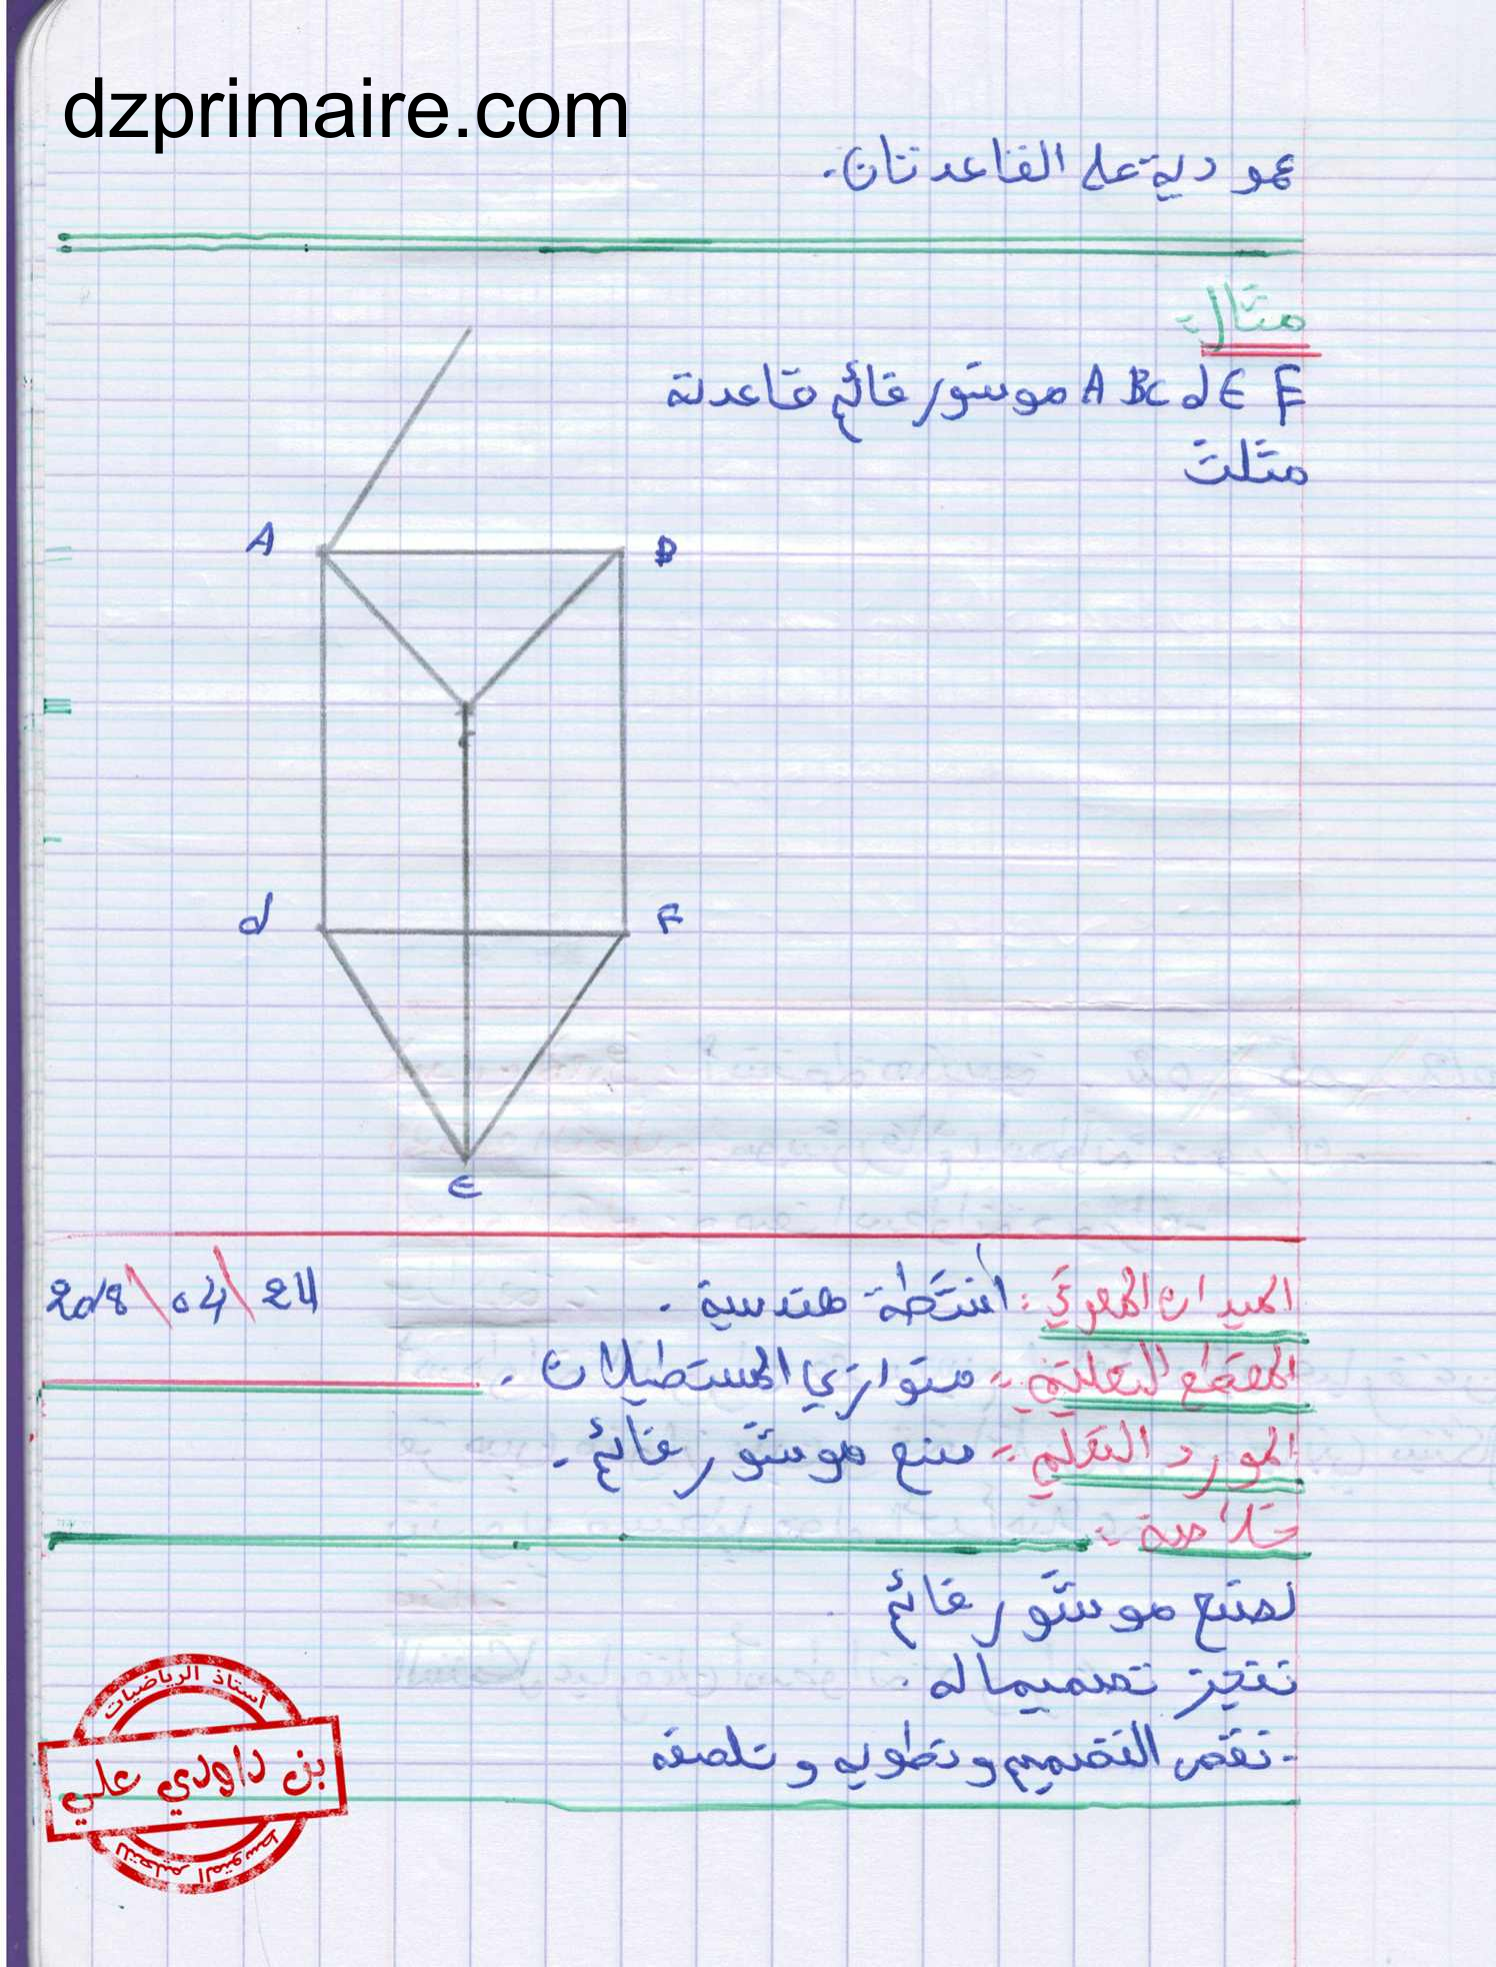 dzprimaire.com
عمودية على القاعدتان.
مثال:
ABCdEF موشور قائم قاعدته
مثلث
A
B
C
d
F
E
الميدان المعرفي: أنشطة هندسية.
24\04\2018
المقطع التعلمي: متوازي المستطيلات.
المورد التعلمي: صنع موشور قائم.
خلاصة:
لصنع موشور قائم
ننجز تصميما له.
- نقص التصميم ونطويه و نلصقه
أستاذ الرياضيات
بن داودي علي
للتعليم المتوسط